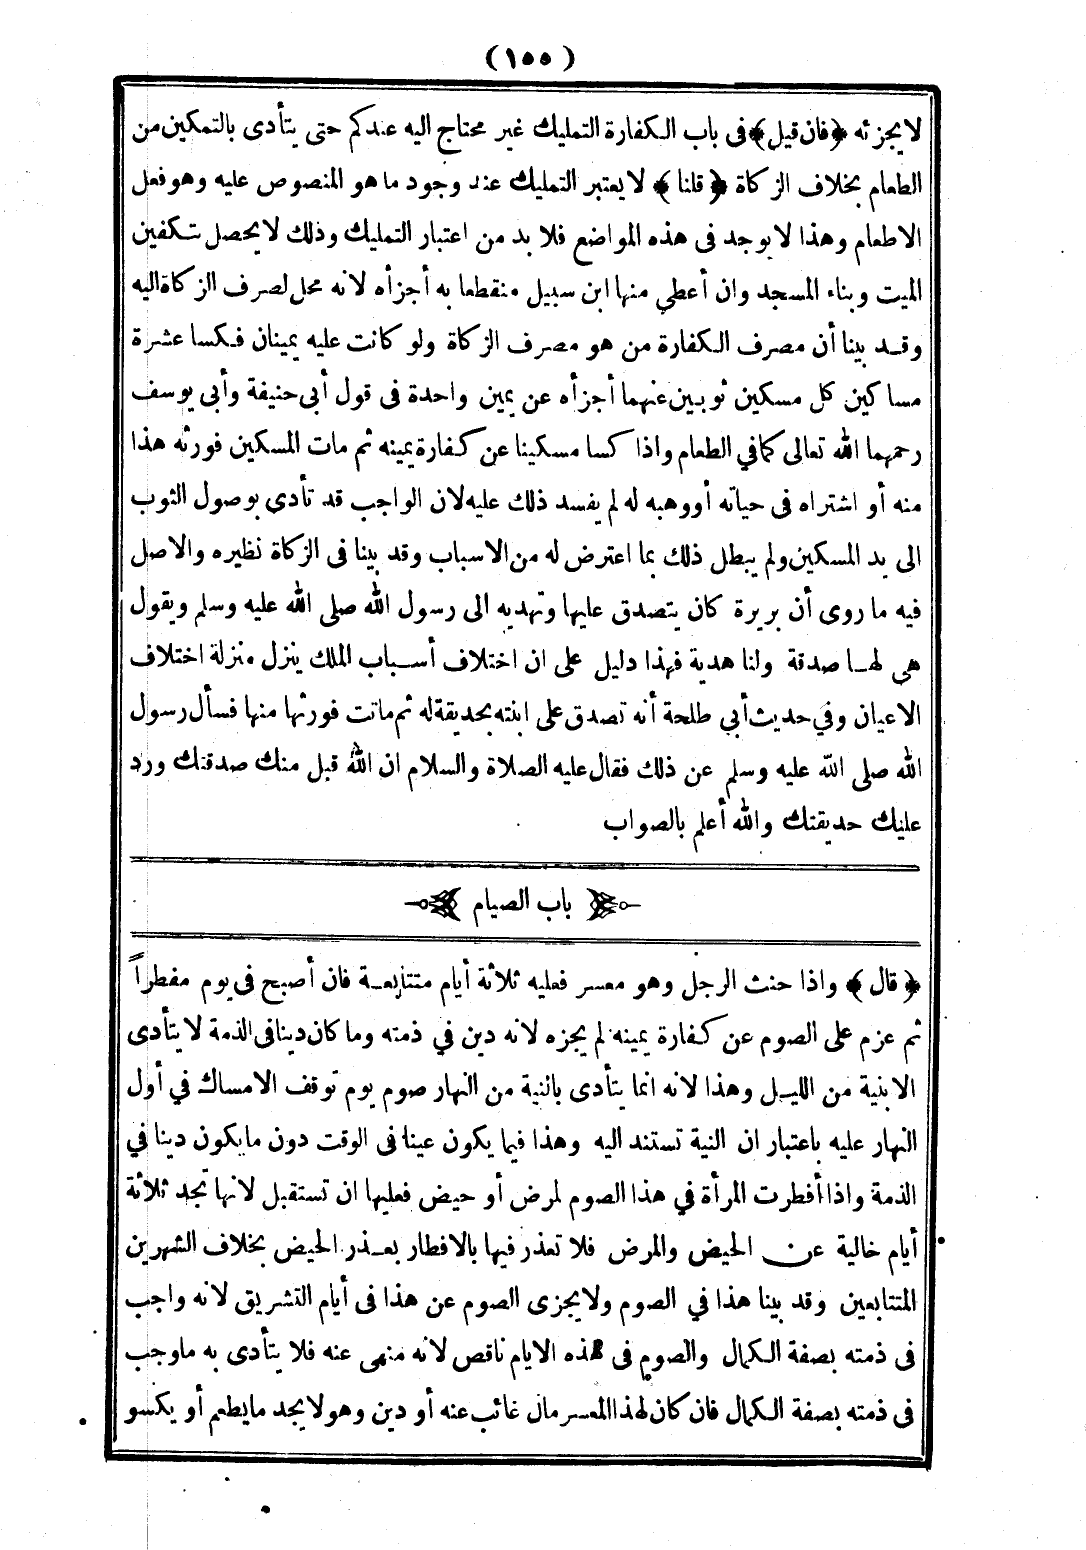 (١٥٥)
لا يجزئه ﴿فان قيل﴾ فى باب الكفارة التمليك غير محتاج اليه عندكم حتى يتأدى بالتمكين من
الطعام بخلاف الزكاة ﴿قلنا﴾ لا يعتبر التمليك عند وجود ما هو المنصوص عليه وهو فعل
الاطعام وهذا لا يوجد فى هذه المواضع فلا بد من اعتبار التمليك وذلك لا يحصل بتكفين
الميت وبناء المسجد وان أعطي منها ابن سبيل منقطعا به أجزأه لانه محل لصرف الزكاة اليه
وقد بينا أن مصرف الكفارة من هو مصرف الزكاة ولو كانت عليه يمينان فكسا عشرة
مساكين كل مسكين ثوبين عنهما أجزأه عن يمين واحدة فى قول أبى حنيفة وأبى يوسف
رحمهما الله تعالى كما في الطعام واذا كسا مسكينا عن كفارة يمينه ثم مات المسكين فورثه هذا
منه أو اشتراه فى حياته أو وهبه له لم يفسد ذلك عليه لان الواجب قد تأدى بوصول الثوب
الى يد المسكين ولم يبطل ذلك بما اعترض له من الاسباب وقد بينا فى الزكاة نظيره والاصل
فيه ما روى أن بريرة كان يتصدق عليها وتهديه الى رسول الله صلى الله عليه وسلم ويقول
هي لها صدقة ولنا هدية فهذا دليل على ان اختلاف أسباب الملك ينزل منزلة اختلاف
الاعيان وفي حديث أبي طلحة أنه تصدق على ابنته بحديقة له ثم ماتت فورثها منها فسأل رسول
الله صلى الله عليه وسلم عن ذلك فقال عليه الصلاة والسلام ان الله قبل منك صدقتك ورد
عليك حديقتك والله أعلم بالصواب
باب الصيام
﴿قال﴾ واذا حنث الرجل وهو معسر فعليه ثلاثة أيام متتابعة فان أصبح فى يوم مفطراً
ثم عزم على الصوم عن كفارة يمينه لم يجزه لانه دين في ذمته وما كان دينا فى الذمة لا يتأدى
الا بنية من الليل وهذا لانه انما يتأدى بالنية من النهار صوم يوم توقف الامساك في أول
النهار عليه باعتبار ان النية تستند اليه وهذا فيما يكون عينا فى الوقت دون ما يكون دينا في
الذمة واذا أفطرت المرأة في هذا الصوم لمرض أو حيض فعليها ان تستقبل لانها تجد ثلاثة
أيام خالية عن الحيض والمرض فلا تعذر فيها بالافطار بعذر الحيض بخلاف الشهرين
المتتابعين وقد بينا هذا في الصوم ولا يجزى الصوم عن هذا فى أيام التشريق لانه واجب
فى ذمته بصفة الكمال والصوم فى هذه الايام ناقص لانه منهى عنه فلا يتأدى به ما وجب
فى ذمته بصفة الكمال فان كان لهذا المعسر مال غائب عنه أو دين وهو لا يجد ما يطعم أو يكسو